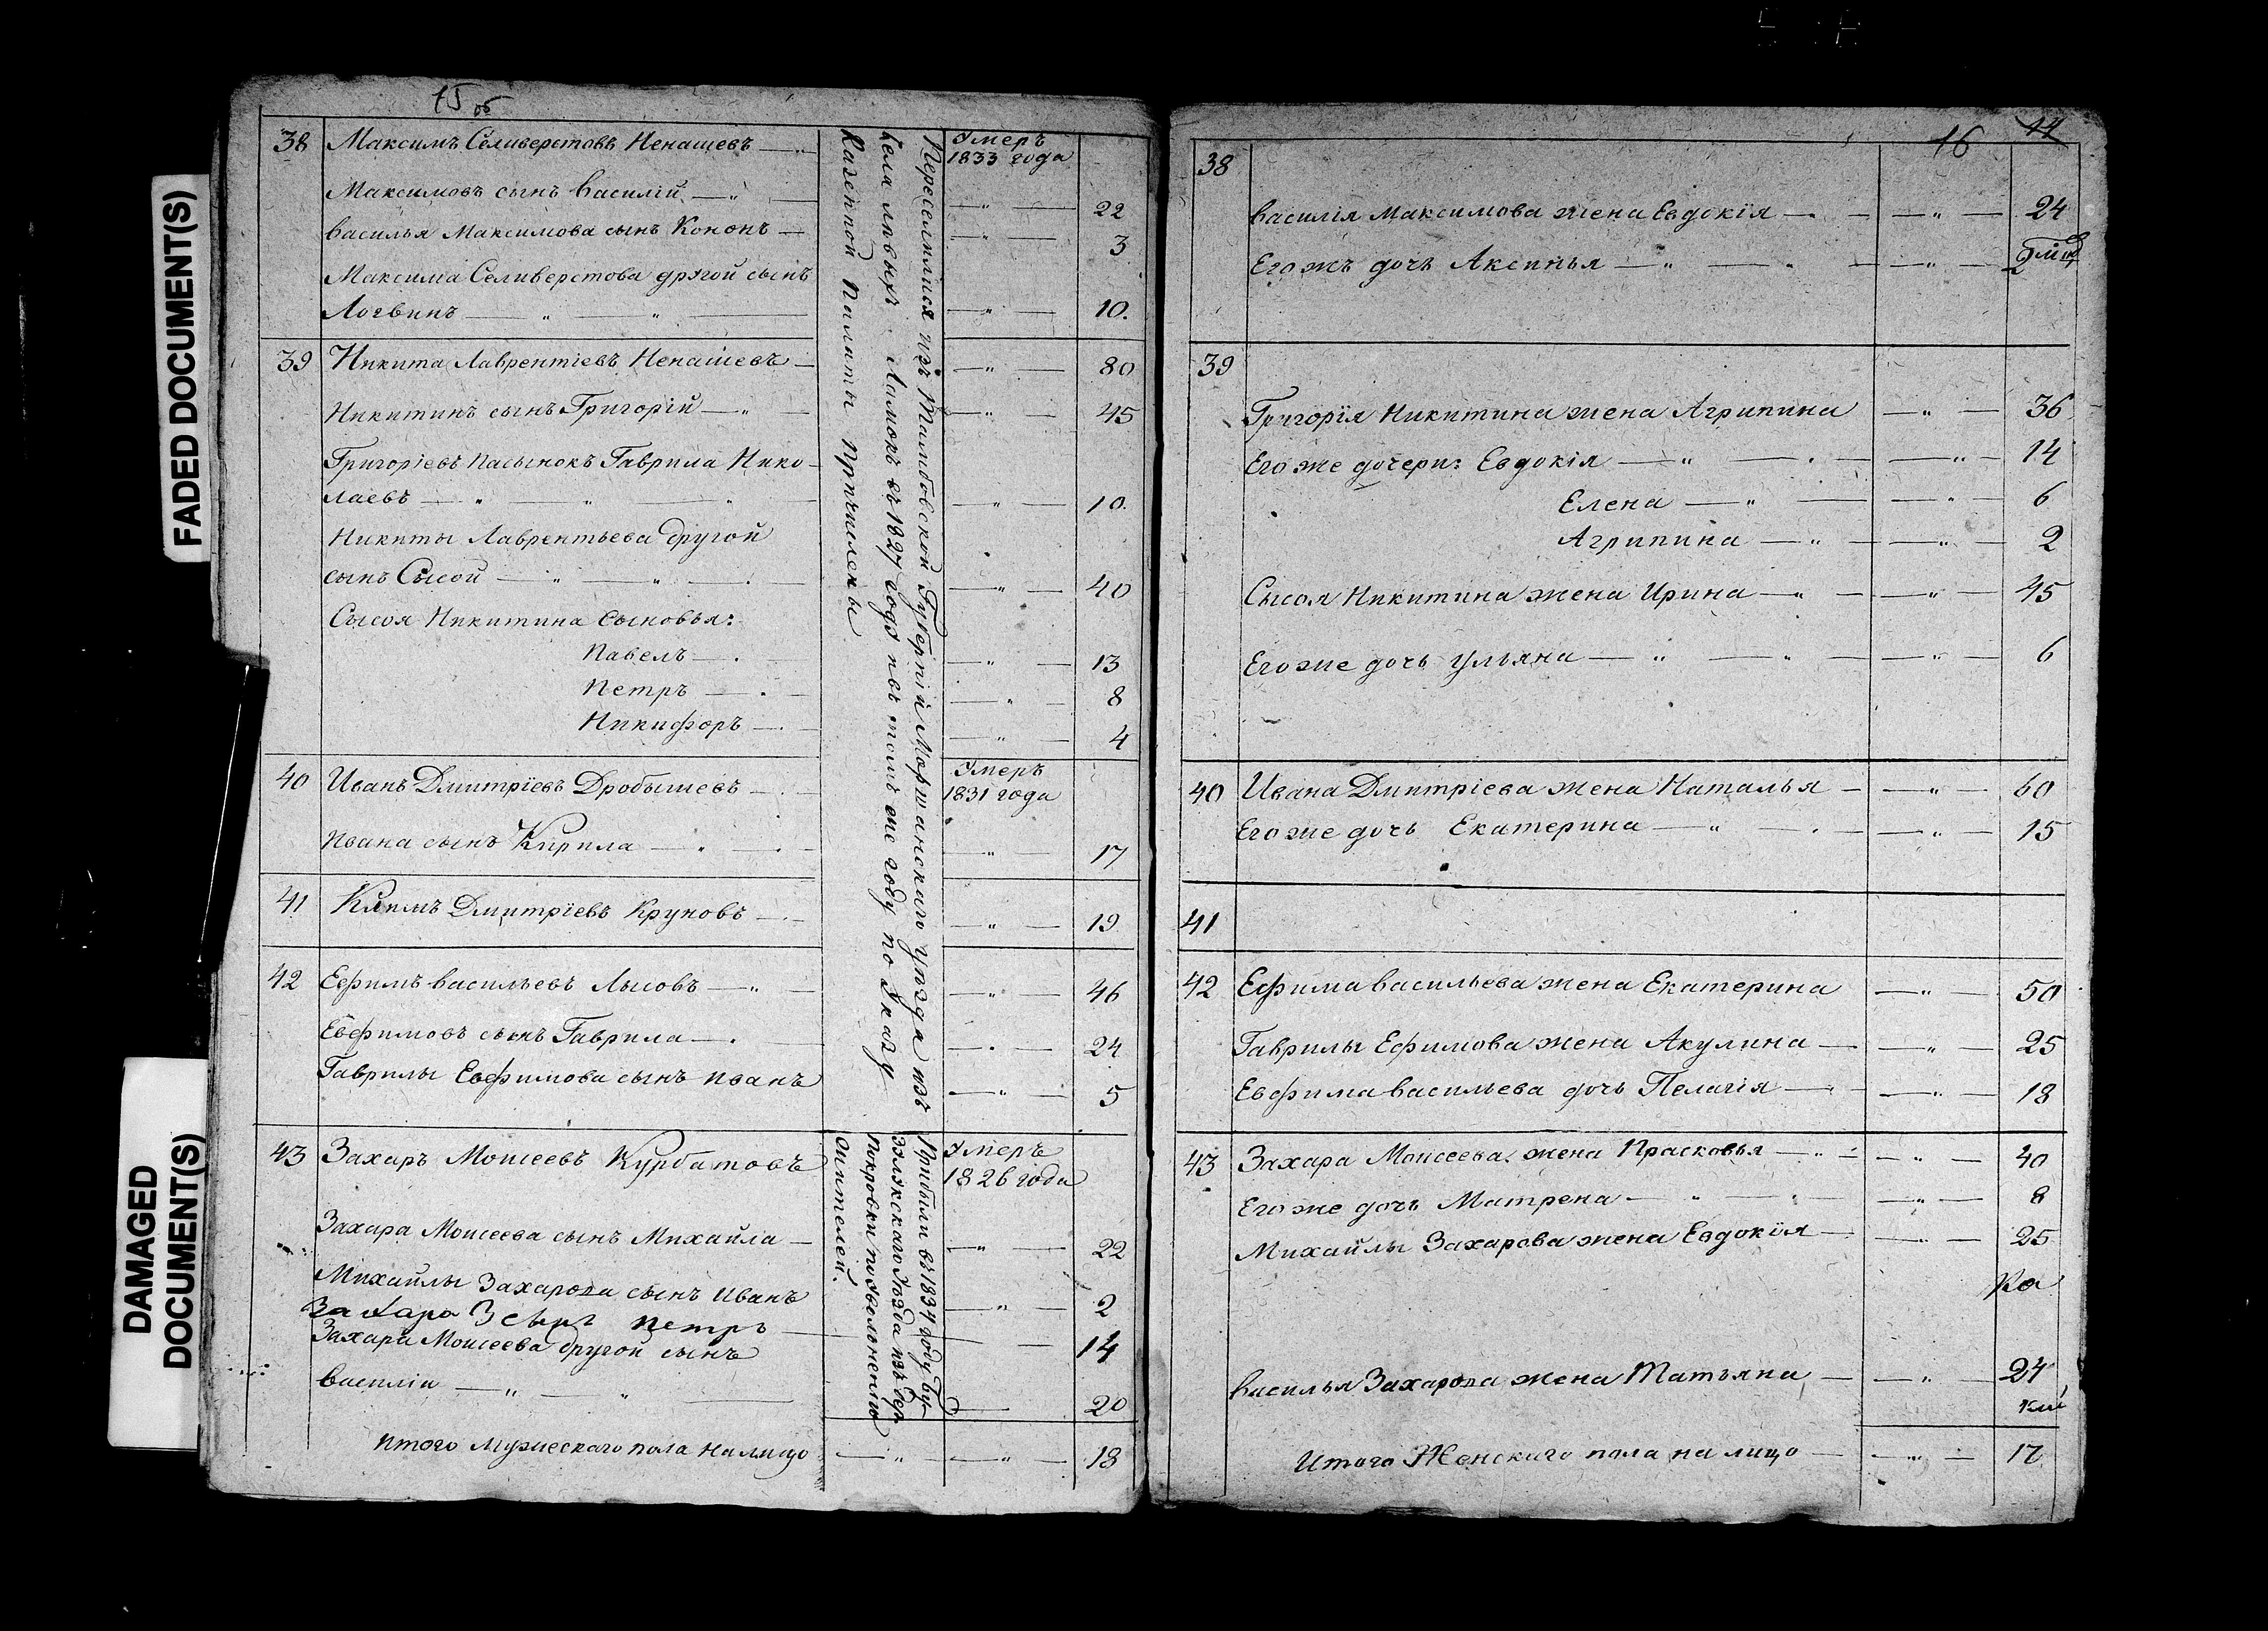 FADED DOCUMENT(S)
DAMAGED
DOCUMENT(S)
15 об
38 Максимъ Селиверстовъ Ненашевъ Умеръ
1833 года
Максимовъ сынъ Василій 22
Василья Максимова сынъ Кононъ 3
Максима Селиверстова другой сынъ
Логвинъ 10.
39 Никита Лаврентіевъ Ненашевъ 80
Никитинъ сынъ Григорій 45
Григоріевъ пасынокъ Гаврила Нико-
лаевъ 10.
Никиты Лаврентьева другой
сынъ Сысой 40
Сысоя Никитина сыновья:
Павелъ 13
Петръ 8
Никифоръ 4
40 Иванъ Дмитріевъ Дробышевъ Умеръ
1831 года
Ивана сынъ Кирила 17
41 Климъ Дмитріевъ Круковъ 19
42 Ефимъ Васильевъ Лысовъ 46
Евфимовъ сынъ Гаврила 24
Гаврилы Евфимова сынъ Иванъ 5
43 Захаръ Моисеевъ Курбатовъ Умеръ
1826 года
Захара Моисеева сынъ Михайла 22
Михайлы Захарова сынъ Иванъ 2
Захара 3 сынъ Петръ 14
Захара Моисеева другой сынъ
Василіи 20
Итого мужескаго пола на лицо 18
Переселились изъ Тамбовской Губерніи Моршанскаго уѣзда изъ
села Лѣвыхъ Ламокъ въ 1827 годѣ и въ томъ же году по Указу
Казенной Палаты Причислены
Прибыли въ 1834 году Бу-
зулукскаго Уѣзда изъ Дер
Покровки по Уволненію
Жителей.
16 14
38
Василія Максимова жена Евдокія 24
Егожъ дочь Аксинья 2
39
Григорія Никитина жена Агрипина 36
Егоже дочери: Евдокія 14
Елена 6
Агрипина 2
Сысоя Никитина жена Ирина 45
Егоже дочь Ульяна 6
40 Ивана Дмитріева жена Наталья 60
Егоже дочь Екатерина 15
41
42 Ефима Васильева жена Екатерина 50
Гаврилы Ефимова жена Акулина 25
Евфима Васильева дочь Пелагія 18
43 Захара Моисеева жена Прасковья 40
Егоже дочь Матрена 8
Михайлы Захарова жена Евдокія 25
Василья Захарова жена Татьяна 24
Итого Женскаго пола на лицо 17